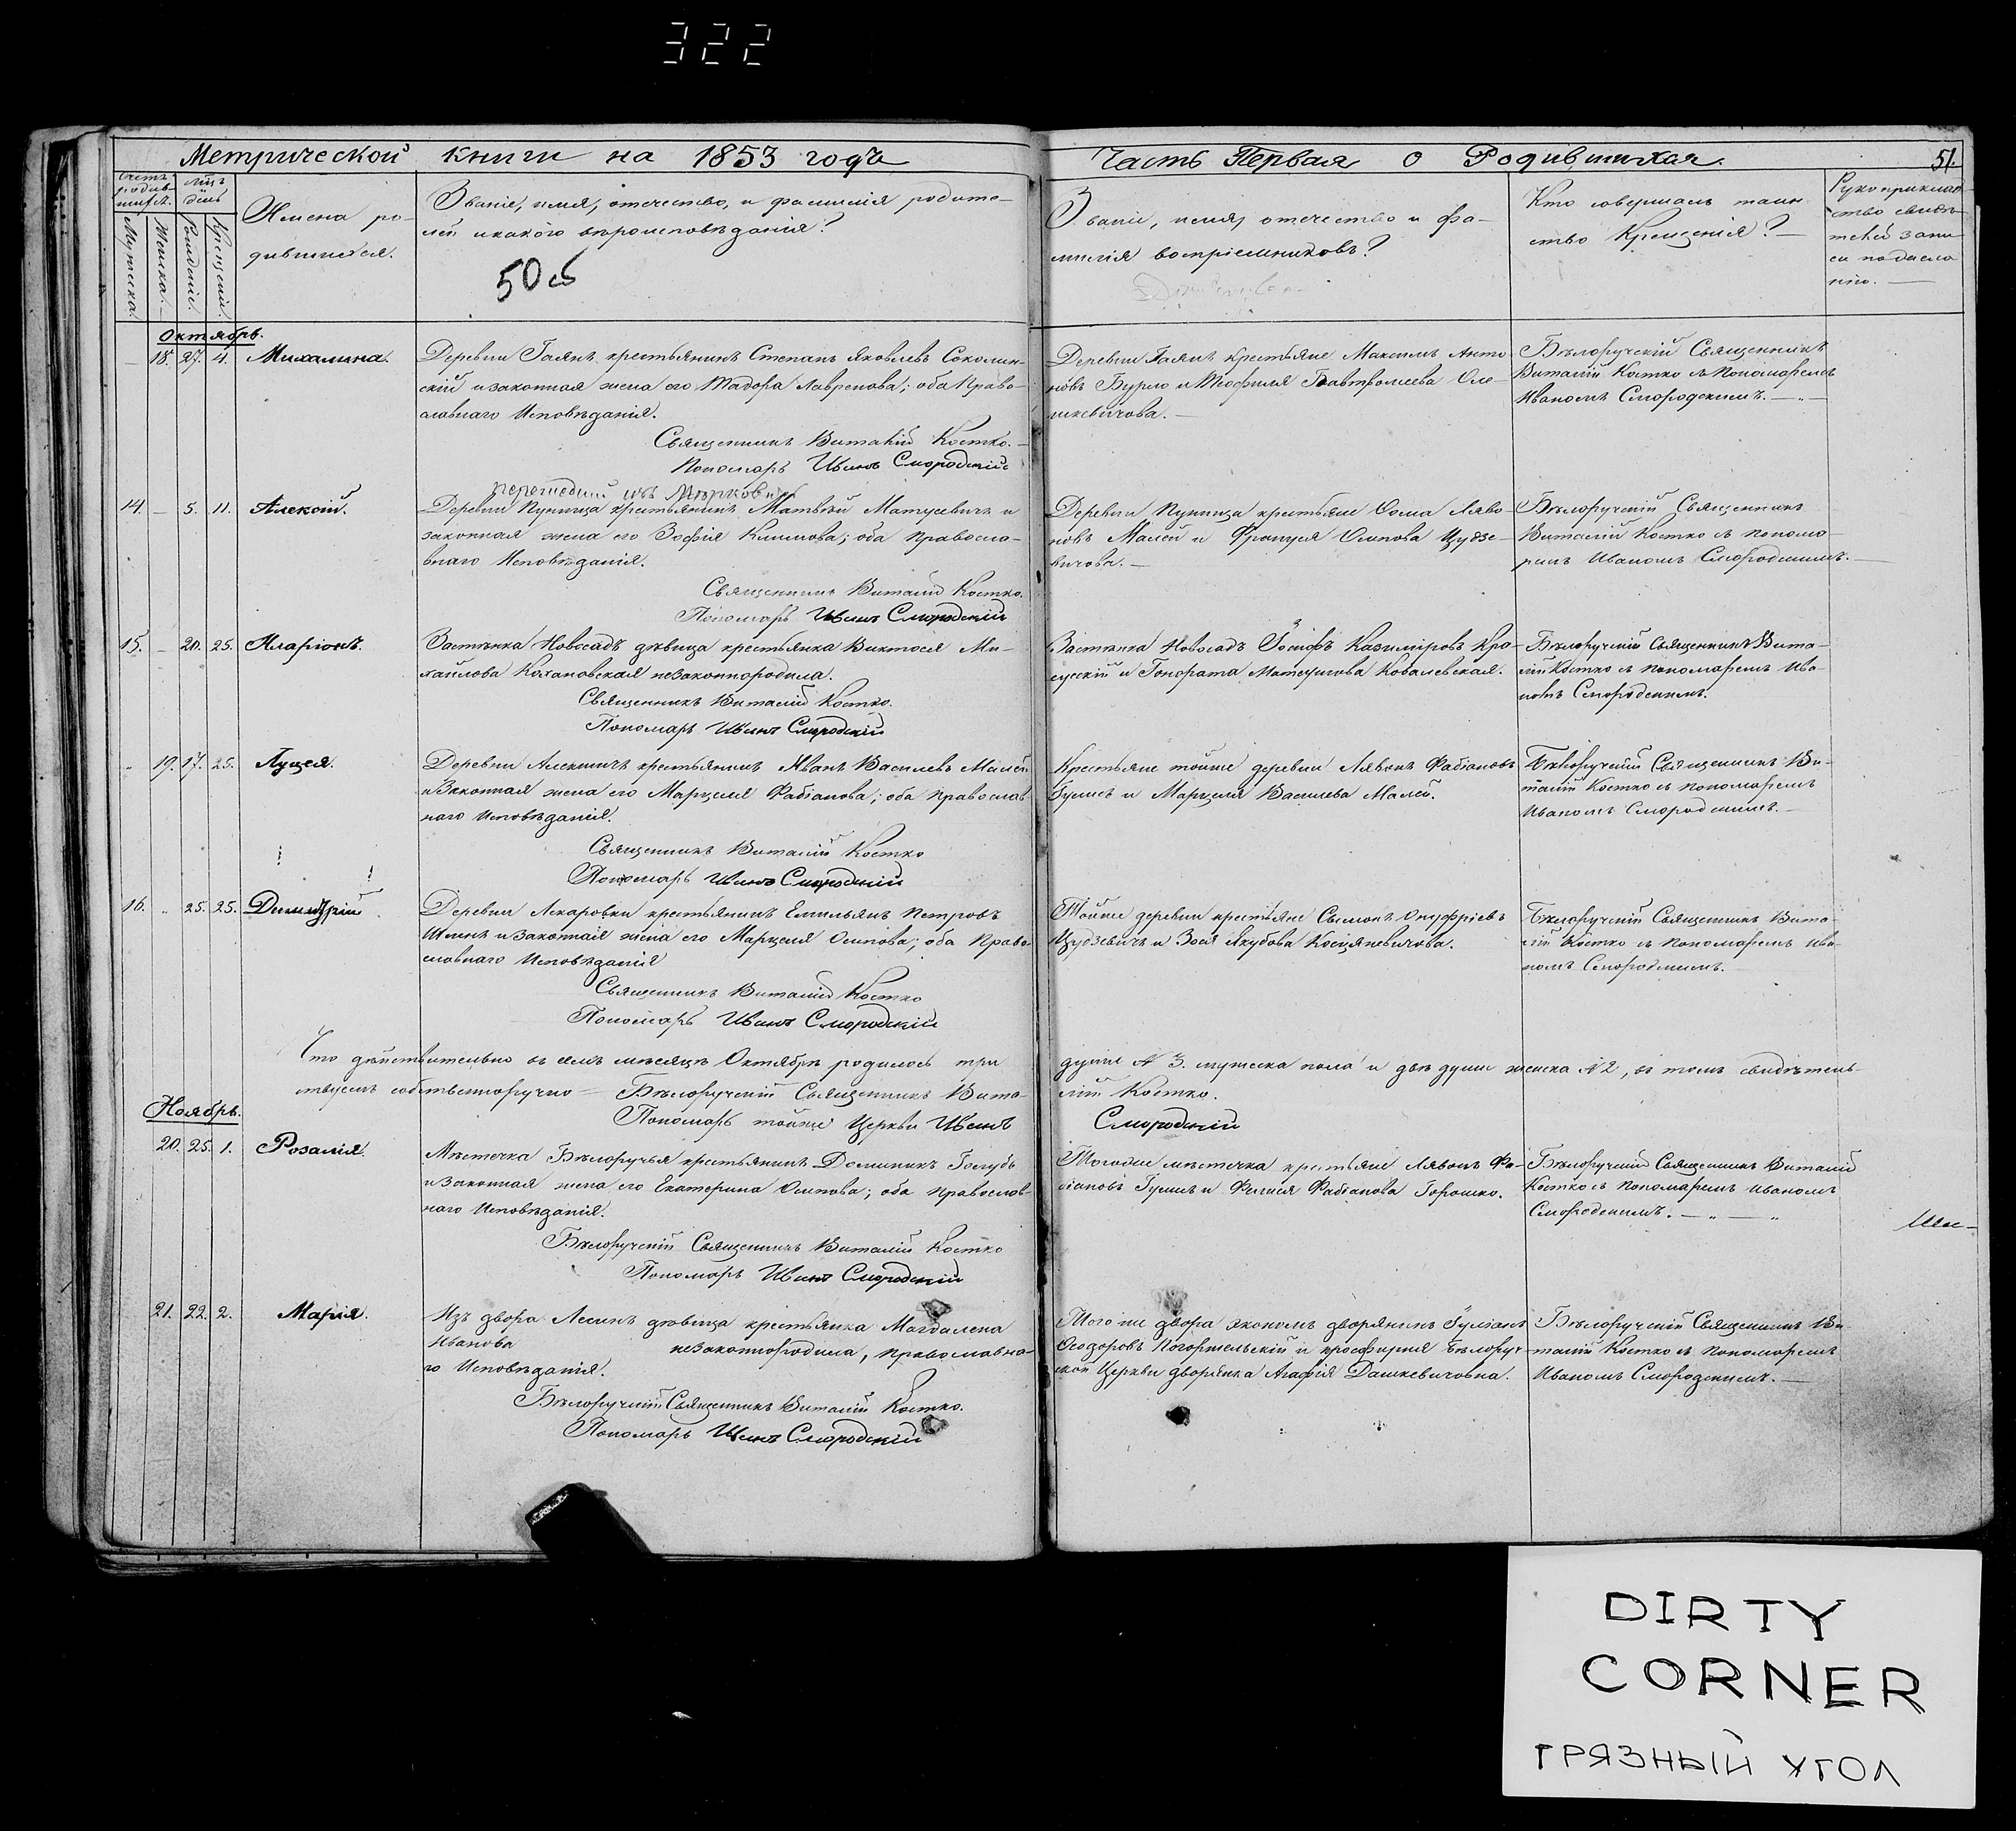 322
Метрической книги на 1853 года
Часть Первая о Родившихся.
51.
Счетъ родив-
шихся.
Мужеска.
Женска.
День
Рожденія.
Крещенія.
Имена ро-
дившихся.
Званіе, имя, отечество, и фамилія родите-
лей и какого вѣроисповѣданія?
50 об
Званіе, имя, отечество и фа-
милія воспріемниковъ?
Кто совершалъ таин
ство Крещенія?
Рукоприклад-
ство свидѣ-
телей запи
си по жела
нію.
Октябрь.
18. 27. 4. Михалина.
Деревни Гаянъ крестьянинъ Степанъ Яковлевъ Соколин-
скій и законная жена его Тадора Лавренова; оба Право-
славнаго Исповѣданія.
Священникъ Виталій Костко.
Пономарь Иванъ Смородскій
Деревни Гаянъ крестьяне Максимъ Анто
новъ Бурло и Теофиля Бавтромеева Оле-
шкевичова.
Бѣлоручскій Священникъ
Виталій Костко съ Пономаремъ
Иваномъ Смородскимъ.
14. 5. 11. Алексій.
перешедшій изъ
Деревни Пунища крестьянинъ Матвѣй Матусевичъ и
законная жена его Зофія Климова; оба Правосла-
внаго Исповѣданія.
Священникъ Виталій Костко.
Пономарь Иванъ Смородскій
Деревни Пунища крестьяне Фома Ляво-
новъ Малей и Францея Осипова Цудзе-
вичова.
Бѣлоручскій Священникъ
Виталій Костко съ Понома-
ремъ Иваномъ Смородскимъ.
15. 20. 25. Иларіонъ.
Застѣнка Новосадъ дѣвица крестьянка Виктося Ми-
хайлова Кохановская незаконнородила.
Священникъ Виталій Костко.
Пономарь Иванъ Смородскій
Застѣнка Новосадъ Іосифъ Казиміровъ Кра-
сускій и Гонората Матеушова Ковалевская.
Бѣлоручскій Священникъ Вита-
лій Костко съ Пономаремъ Ива-
номъ Смородскимъ.
19. 17. 25. Луцея.
Деревни Алекшичъ крестьянинъ Иванъ Василевъ Малей
и Законная жена его Марцеля Фабіанова; оба Православ
наго Исповѣданія.
Священникъ Виталій Костко
Пономарь Иванъ Смородскій
Крестьяне тойже деревни Лявонъ Фабіановъ
Гулисъ и Марцеля Василева Малей.
Бѣлоручскій Священникъ Ви-
талій Костко съ Пономаремъ
Иваномъ Смородскимъ.
16. 25. 25. Димитрій
Деревни Лекаровки крестьянинъ Емильянъ Петровъ
и Законная жена его Марцеля Осипова; оба Право
славнаго Исповѣданія
Священникъ Виталій Костко
Пономарь Иванъ Смородскій
Тойже деревни крестьяне Сымонъ Онуфріевъ
Цудзевичъ и Зося Якубова Косцяневичова.
Бѣлоручскій Священникъ Вита-
лій Костко съ Пономаремъ Ива-
номъ Смородскимъ.
Что дѣйствительно въ семъ мѣсяцѣ Октябрѣ родилось три души № 3. мужеска пола и двѣ души женска № 2, въ томъ свидѣтель-
ствуемъ собственноручно Бѣлоручскій Священникъ Вита-лій Костко.
Пономарь тойже Церкви Иванъ Смородскій
Ноябрь.
20. 25. 1. Розалія.
Мѣстечка Бѣлоручья крестьянинъ Доминикъ Голубъ
и Законная жена его Екатерина Осипова; оба Православ-
наго Исповѣданія.
Бѣлоручскій Священникъ Виталій Костко
Пономарь Иванъ Смородскій
Тогоже мѣстечка крестьяне Лявонъ Фа-
біановъ Гулисъ и Фелися Фабіанова Горошко.
Бѣлоручскій Священникъ Виталій
Костко съ Пономаремъ Иваномъ
Смородскимъ.
21. 22. 2. Марія.
Изъ двора Лесинъ дѣвица крестьянка Магдалена
Иванова незаконнородила, Православна-
го Исповѣданія.
Бѣлоручскій Священникъ Виталій Костко.
Пономарь Иванъ Смородскій
Того же двора экономъ дворянинъ Гуліанъ
Феодоровъ Погоржельскій и просфирня Бѣлоруч-
ской Церкви дворянка Агафія Дашкевичовна.
Бѣлоручскій Священникъ Ви-
талій Костко съ Пономаремъ
Иваномъ Смородскимъ.
DIRTY
CORNER
ГРЯЗНЫЙ УГОЛ